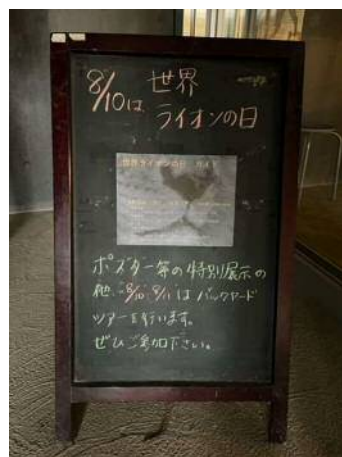 8/10は 世界
ライオンの日
世界ライオンの日 ガイド
ポスター等の特別展示の
他、8/10、8/11はバックヤード
ツアーを行います。
ぜひご参加下さい。